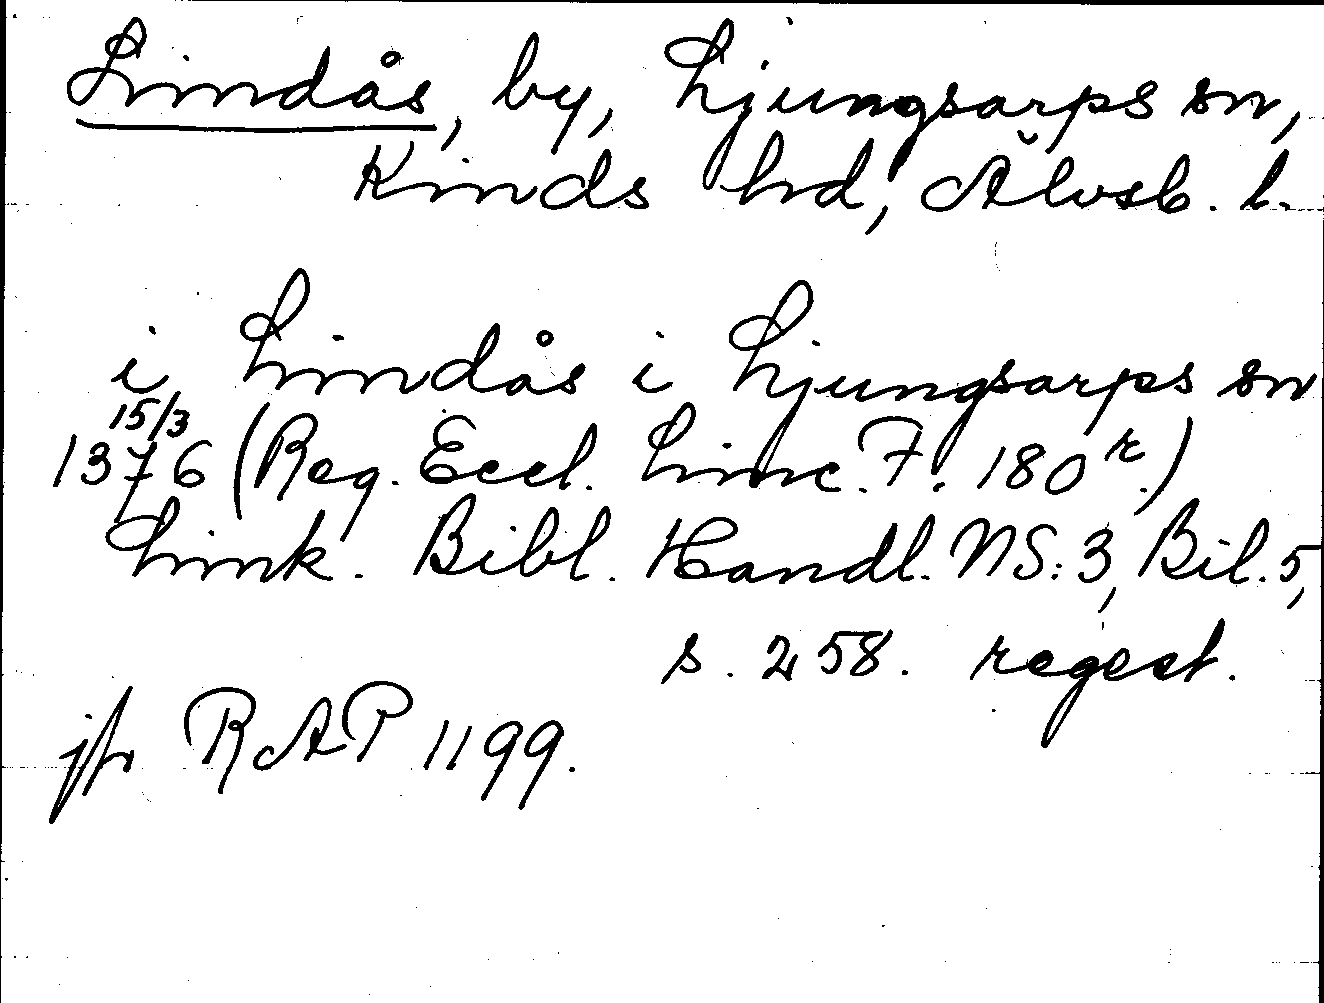 Lindås, by, Ljungsarps sn,
Kinds hd, Älvsb. l.
i Lindås i Ljungsarps sn
15/3
1376 (Reg. Eccl. Linc. F. 180r.)
Link. Bibl. Handl. NS: 3, Bil. 5,
s. 258. regest.
jfr RAP 1199.